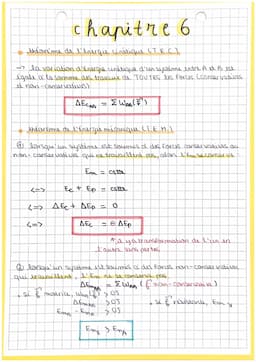 chapitre 6
• théorème de l'énergie cinétique (T.E.C.)
→ la variation d'énergie cinétique d'un système entre A et B est
égale à la somme des travaux de TOUTES les forces (conservatives
et non-conservatives)
• théorème de l'énergie mécanique (T.E.M.)
① lorsqu'un système est soumis à des forces conservatives ou
non-conservatives qui ne travaillent pas, alors l'Em se conserve
Em = cste
<=> Ec + Ep = cste
<=> ΔEc + ΔEp = 0
<=> ΔEc = ⊖ ΔEp
il y a transformation de l'un en
l'autre sans pertes
② lorsqu'un système est soumis à des forces non-conservatives
qui travaillent, l'Em ne se conserve pas